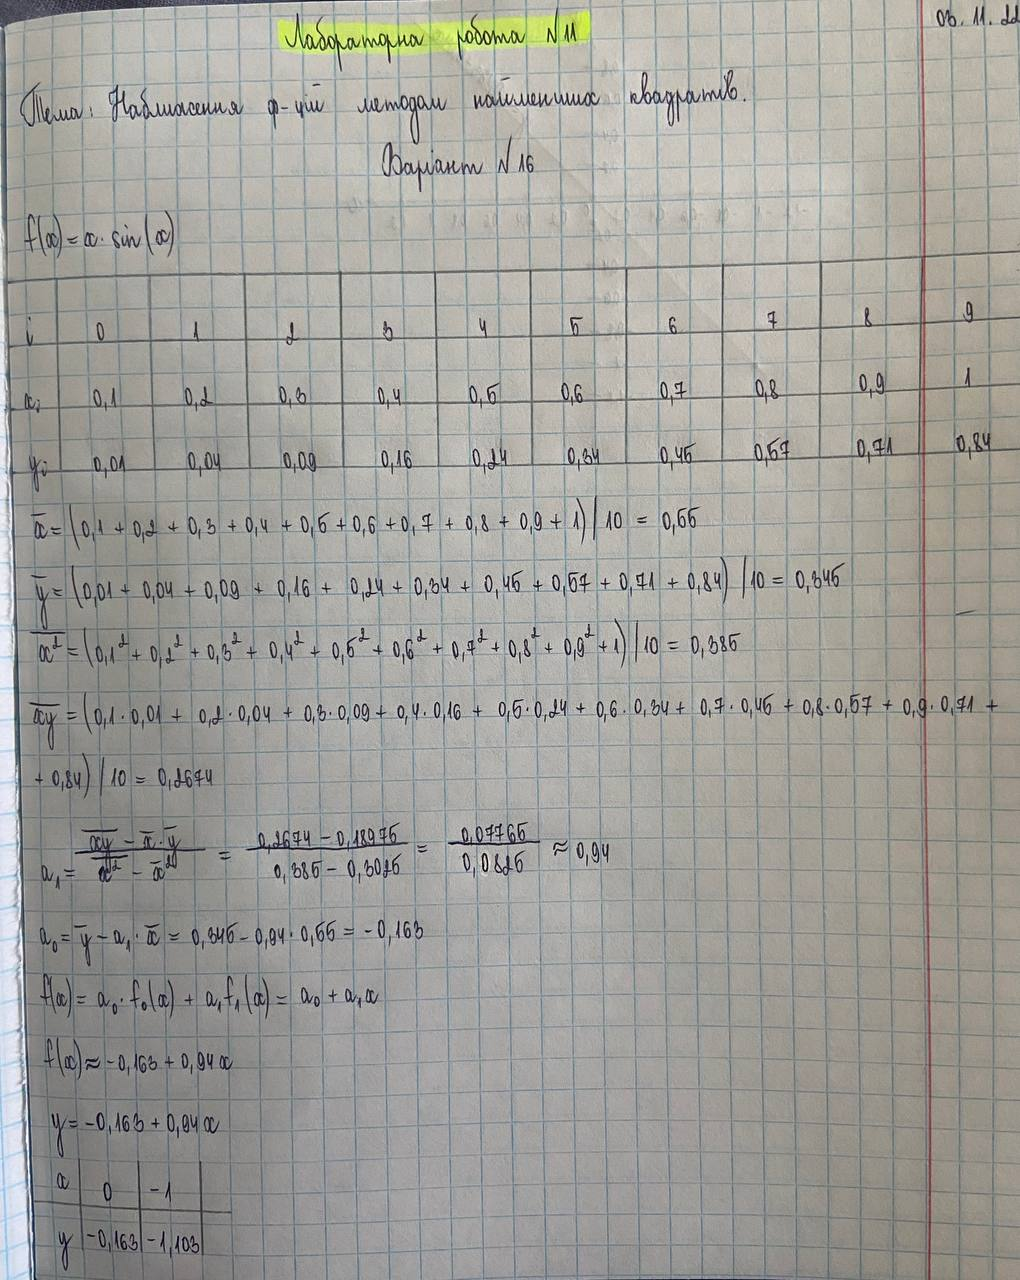 03.11.22
Лабораторна робота №11
Тема: Наближення ф-цій методом найменших квадратів.
Варіант №16
f(x)=x·sin(x)
i 0 1 2 3 4 5 6 7 8 9
xᵢ 0,1 0,2 0,3 0,4 0,5 0,6 0,7 0,8 0,9 1
yᵢ 0,01 0,04 0,09 0,16 0,24 0,34 0,45 0,57 0,71 0,84
x̅=(0,1+0,2+0,3+0,4+0,5+0,6+0,7+0,8+0,9+1)/10=0,55
y̅=(0,01+0,04+0,09+0,16+0,24+0,34+0,45+0,57+0,71+0,84)/10=0,345
x̅²=(0,1²+0,2²+0,3²+0,4²+0,5²+0,6²+0,7²+0,8²+0,9²+1)/10=0,385
x̅y̅=(0,1·0,01+0,2·0,04+0,3·0,09+0,4·0,16+0,5·0,24+0,6·0,34+0,7·0,45+0,8·0,57+0,9·0,71+
+0,84)/10=0,2674
a₁=(x̅y̅-x̅·y̅)/(x̅²-x̅²)=(0,2674-0,18975)/(0,385-0,3025)=0,07765/0,0825≈0,94
a₀=y̅-a₁·x̅=0,345-0,94·0,55=-0,163
f(x)=a₀·f₀(x)+a₁f₁(x)=a₀+a₁x
f(x)≈-0,163+0,94x
y=-0,163+0,94x
x 0 -1
y -0,163 -1,103